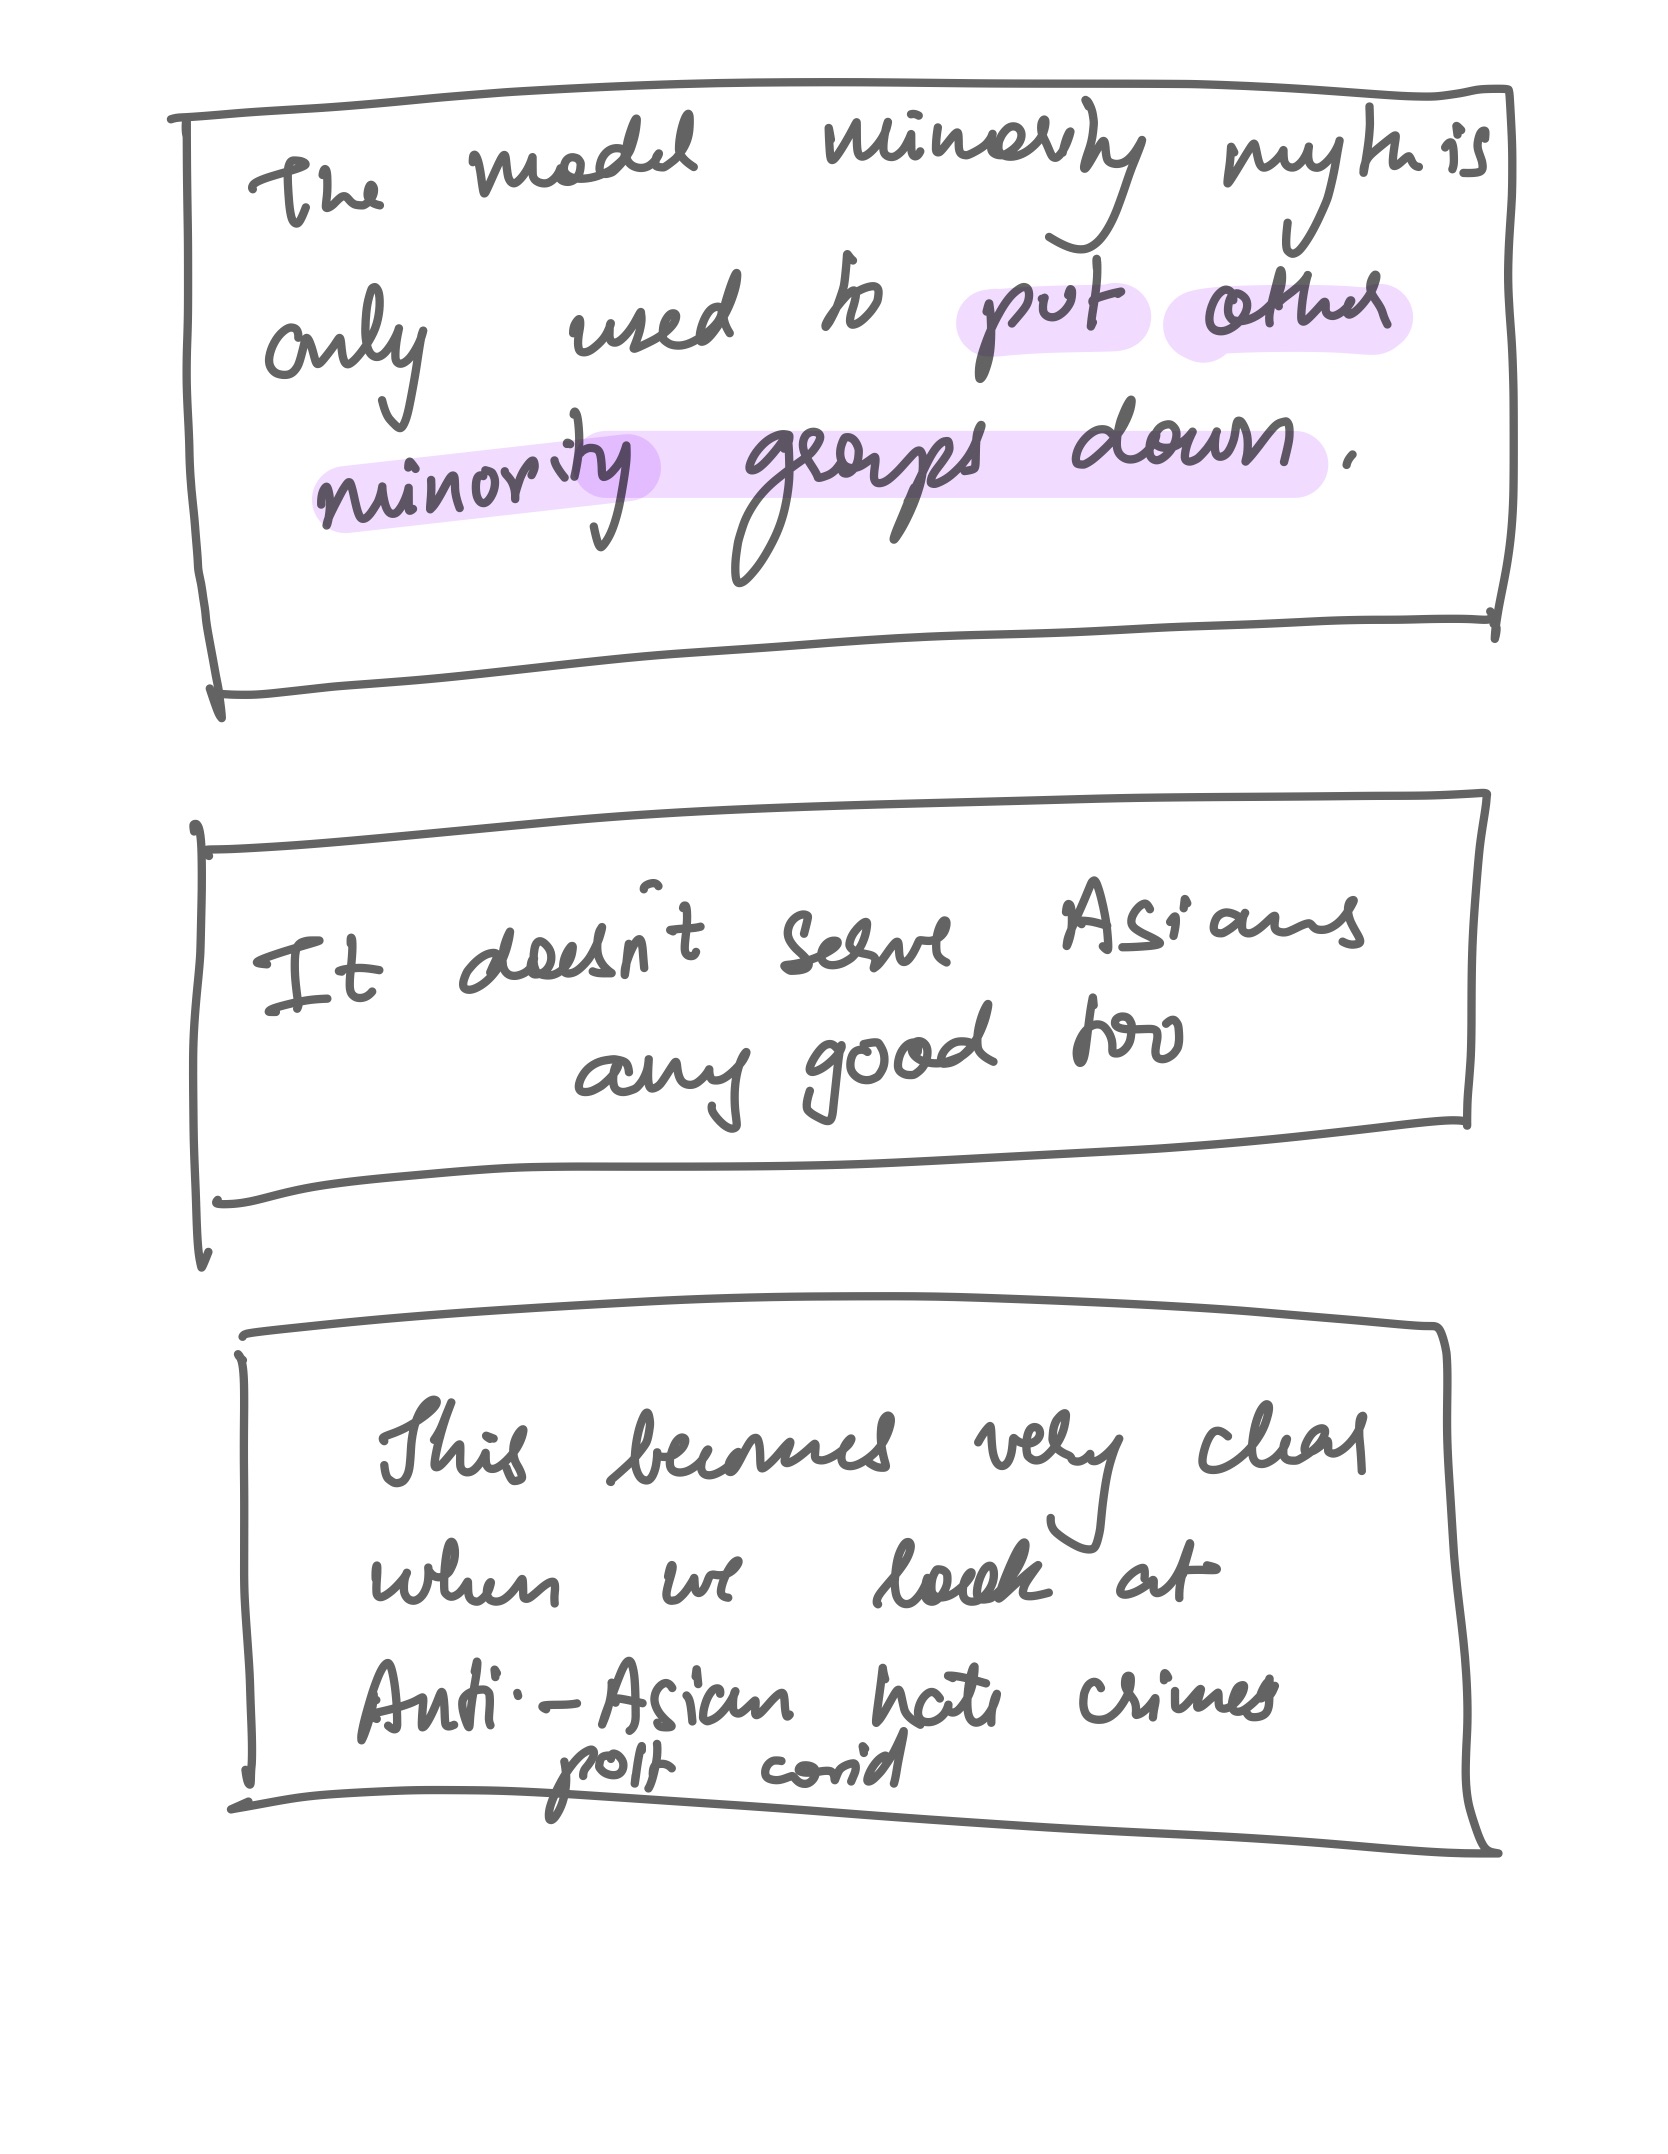 The model minority myth is
only used to put other
minority groups down.
It doesn't serve Asians
any good too
This becomes very clear
when we look at
Anti-Asian hate crimes
post covid